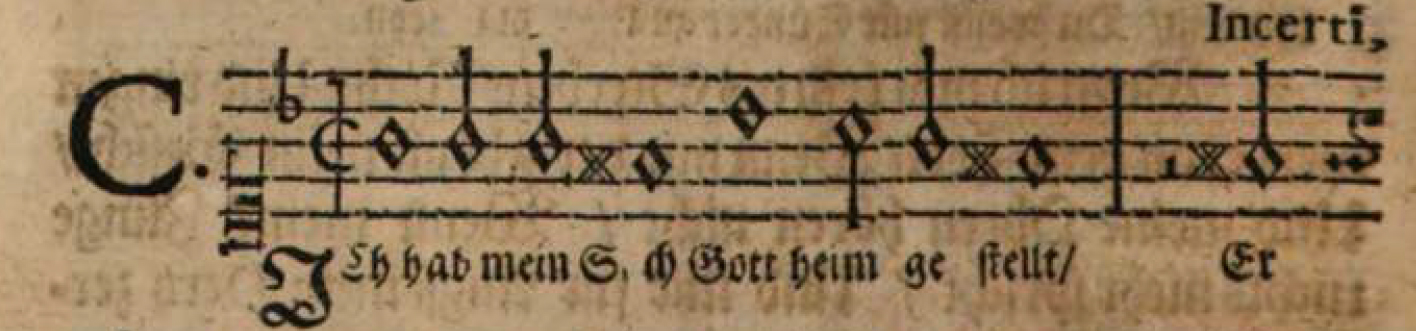 Incerti,
C.
ICh hab mein S. ch Gott heim ge stellt/ Er